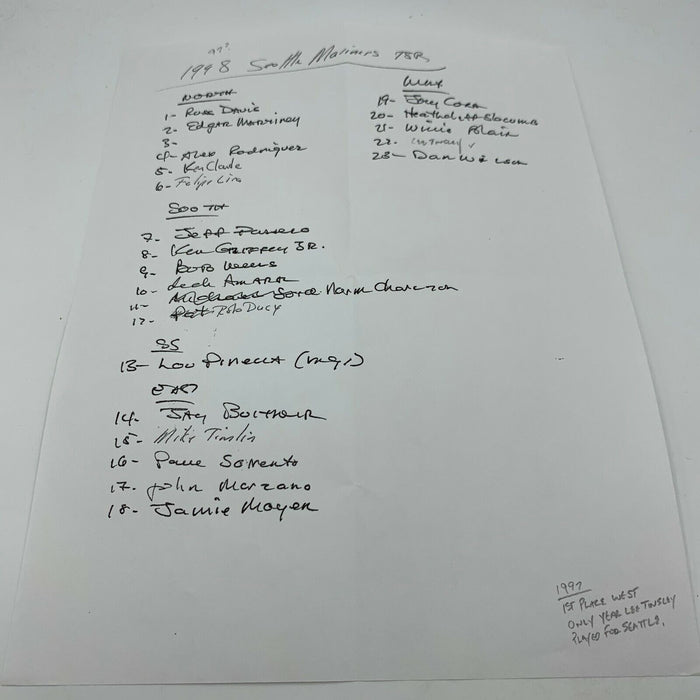 97?
1998 Seattle Mariners TSB
NORTH
1- Russ Davis
2- Edgar Martinez
3-
4- Alex Rodriguez
5- Ken Cloude
6- Felipe Lira
SOUTH
7- Jeff Fassero
8- Ken Griffey JR.
9- Bob Wells
10- Rich Amaral
11- Norm Charlton
12- Rob Ducey
SS
13- Lou Piniella (mgr)
EAST
14- Jay Buhner
15- Mike Timlin
16- Paul Sorrento
17- John Marzano
18- Jamie Moyer
West
19- Joey Cora
20- Heathcliff Slocumb
21- Willie Blair
22-
23- Dan Wilson
1997
1ST PLACE WEST
ONLY YEAR LEE TINSLEY
PLAYED FOR SEATTLE.